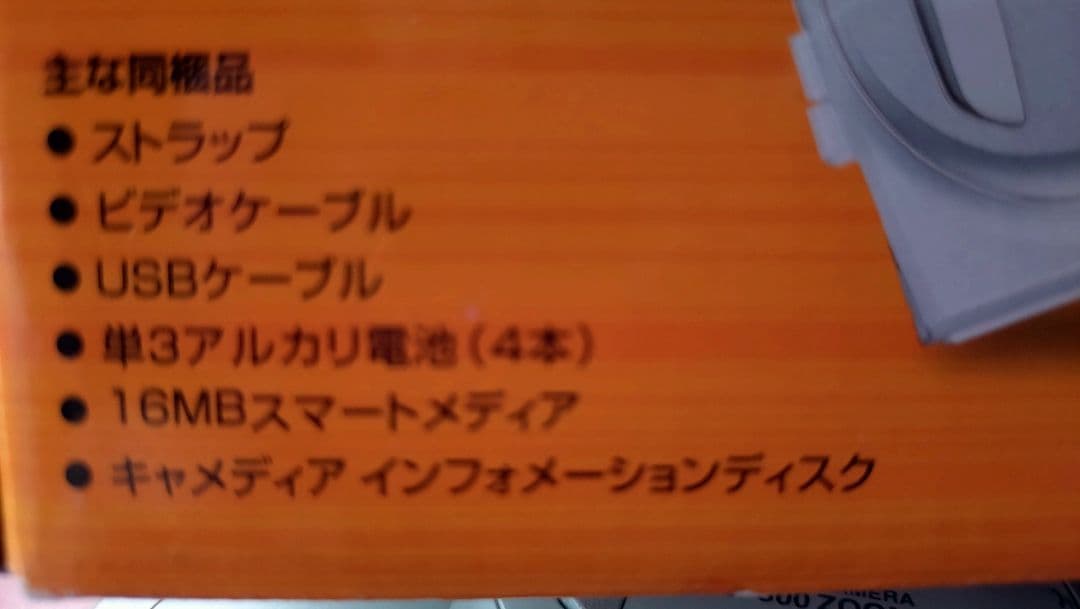 主な同梱品
● ストラップ
● ビデオケーブル
● USBケーブル
● 単3アルカリ電池(4本)
● 16MBスマートメディア
● キャメディア インフォメーションディスク